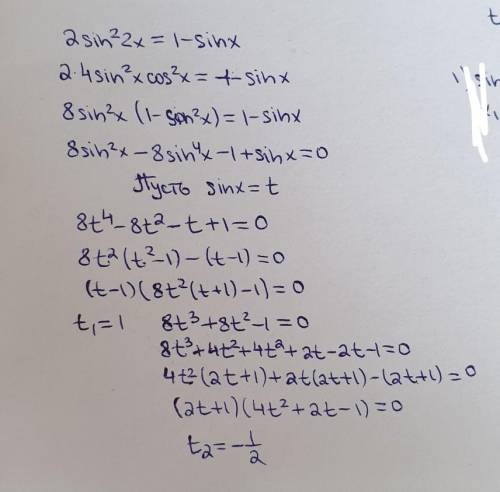 t
2sin²2x = 1 - sinx
2·4sin²x cos²x = 1 - sinx
1) sin
8sin²x (1 - sin²x) = 1 - sinx
8sin²x - 8sin⁴x - 1 + sinx = 0
Пусть sinx = t
8t⁴ - 8t² - t + 1 = 0
8t²(t² - 1) - (t - 1) = 0
(t - 1)(8t²(t + 1) - 1) = 0
t₁ = 1 8t³ + 8t² - 1 = 0
8t³ + 4t² + 4t² + 2t - 2t - 1 = 0
4t²(2t + 1) + 2t(2t + 1) - (2t + 1) = 0
(2t + 1)(4t² + 2t - 1) = 0
t₂ = -1/2